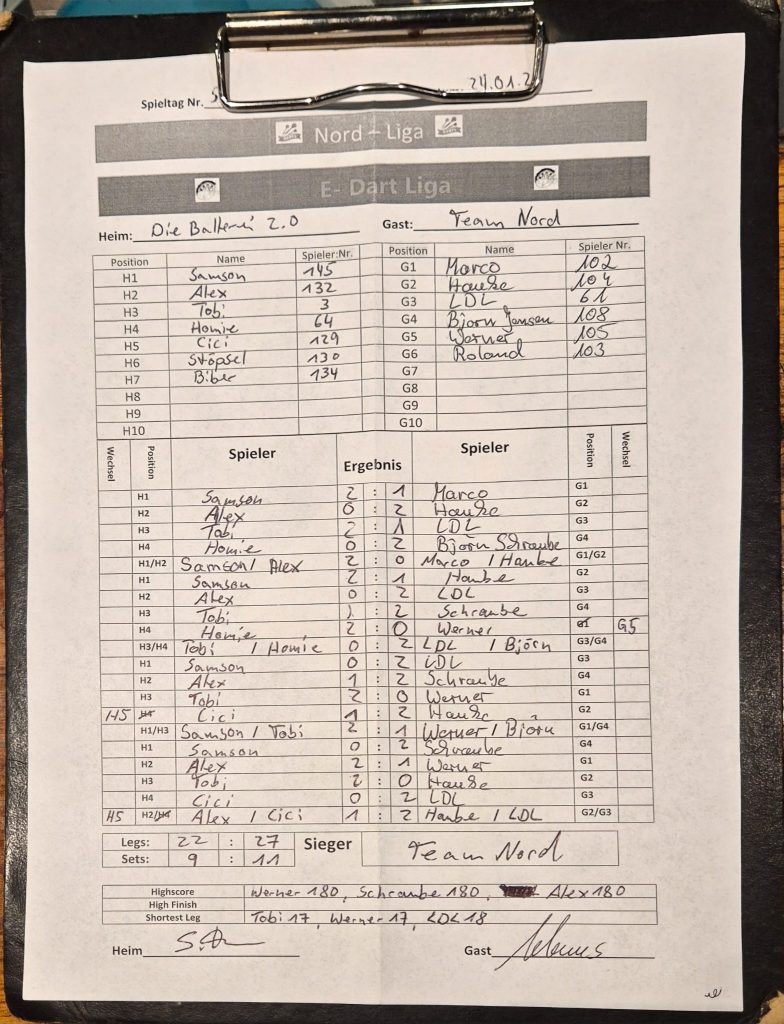 Spieltag Nr. 24.01.2
Nord – Liga
E- Dart Liga
Heim: Die Batterie 2.0 Gast: Team Nord
Position Name Spieler:Nr. Position Name Spieler Nr.
H1 Samson 145 G1 Marco 102
H2 Alex 132 G2 Hauke 104
H3 Tobi 3 G3 LDL 61
H4 Homie 64 G4 Björn Jensen 108
H5 Cici 129 G5 Werner 105
H6 Stöpsel 130 G6 Roland 103
H7 Biber 134 G7
H8 G8
H9 G9
H10 G10
Wechsel Position Spieler Ergebnis Spieler Position Wechsel
H1 Samson 2 : 1 Marco G1
H2 Alex 0 : 2 Hauke G2
H3 Tobi 2 : 1 LDL G3
H4 Homie 0 : 2 Björn Schraube G4
H1/H2 Samson / Alex 2 : 0 Marco / Hauke G1/G2
H1 Samson 2 : 1 Hauke G2
H2 Alex 0 : 2 LDL G3
H3 Tobi : 2 Schraube G4
H4 Homie 2 : 0 Werner G1 G5
H3/H4 Tobi / Homie 0 : 2 LDL / Björn G3/G4
H1 Samson 0 : 2 LDL G3
H2 Alex 1 : 2 Schraube G4
H3 Tobi 2 : 0 Werner G1
H5 H4 Cici 1 : 2 Hauke G2
H1/H3 Samson / Tobi 2 : 1 Werner / Björn G1/G4
H1 Samson 0 : 2 Schraube G4
H2 Alex 2 : 1 Werner G1
H3 Tobi 2 : 0 Hauke G2
H4 Cici 0 : 2 LDL G3
H5 H2/H4 Alex / Cici 1 : 2 Hauke / LDL G2/G3
Legs: 22 : 27 Sieger Team Nord
Sets: 9 : 11
Highscore Werner 180, Schraube 180, Alex 180
High Finish
Shortest Leg Tobi 17, Werner 17, LDL 18
Heim Gast